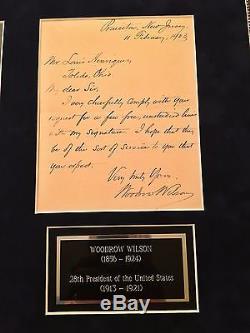 Princeton, New Jersey.
11 February, 1903
Mr. Louis
Toledo, Ohio.
My dear Sir,
I very cheerfully comply with your
request for a few free, unstudied lines
with my signature. I hope that they
be of the sort of service to you that
you expect.
Very truly Yours,
Woodrow Wilson
WOODROW WILSON
(1856 - 1924)
28th President of the United States
(1913 - 1921)